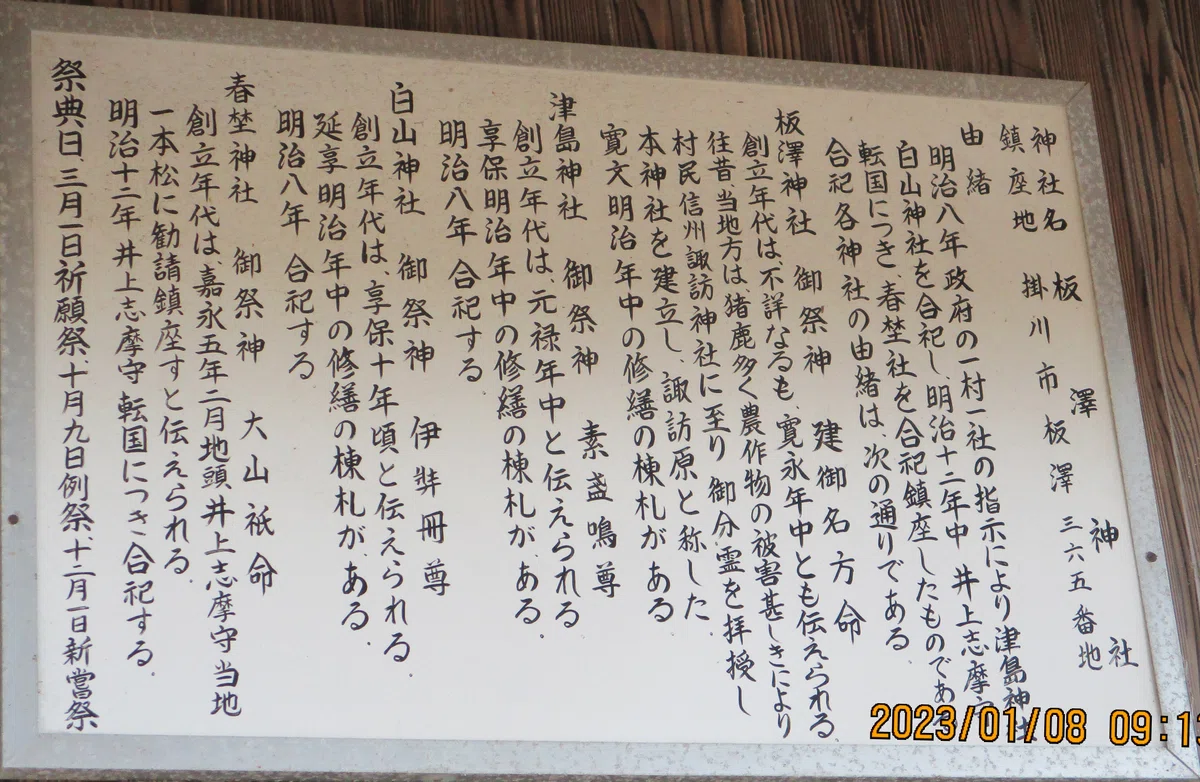 神社名 板澤神社
鎮座地 掛川市板澤三六五番地
由緒
明治八年政府の一村一社の指示により津島神社
白山神社を合祀し、明治十二年中 井上志摩守
転国につき、春埜社を合祀鎮座したものであ
合祀各神社の由緒は、次の通りである
板澤神社 御祭神 建御名方命
創立年代は、不詳なるも、寛永年中とも伝えられる、
往昔、当地方は、猪鹿多く農作物の被害甚しきにより
村民信州諏訪神社に至り 御分霊を拝授し
本神社を建立し、諏訪原と称した
寛文明治年中の修繕の棟札がある
津島神社 御祭神 素盞鳴尊
創立年代は、元禄年中と伝えられる
享保明治年中の修繕の棟札が、ある.
明治八年 合祀する
白山神社 御祭神 伊弉冊尊
創立年代は、享保十年頃と伝えられる
延享明治年中の修繕の棟札が、ある.
明治八年 合祀する
春埜神社 御祭神 大山祇命
創立年代は、嘉永五年二月地頭井上志摩守当地
一本松に勧請鎮座すと伝えられる.
明治十二年 井上志摩守 転国につき合祀する.
祭典日、三月一日祈願祭、十月九日例祭、十二月一日新嘗祭
2023/01/08 09:13